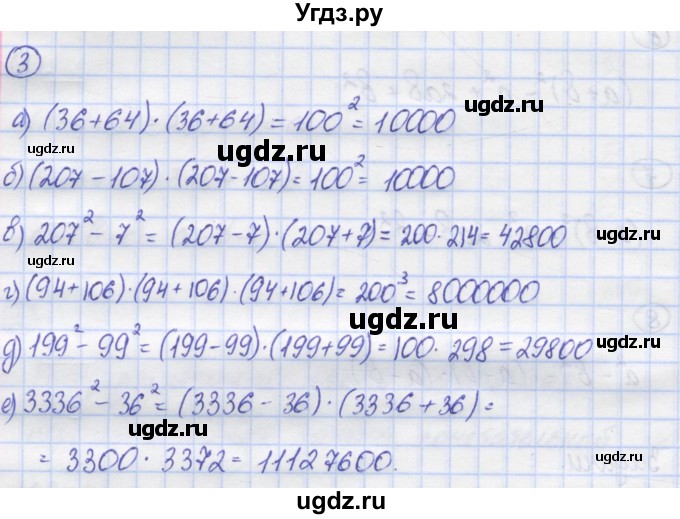 Угдз.ру
3
а) (36+64)·(36+64) = 100² = 10000
ugdz.ru
ugdz.ru
б) (207 - 107)·(207-107) = 100² = 10000
ugdz.ru
в) 207² - 7² = (207-7)·(207+7) = 200·214 = 42800
ugdz.ru
ugdz.ru
г) (94+106)·(94+106)·(94+106) = 200³ = 8000000
ugdz.ru
д) 199² - 99² = (199-99)·(199+99) = 100·298 = 29800
ugdz.ru
ugdz.ru
е) 3336² - 36² = (3336 - 36)·(3336+36) =
ugdz.ru
= 3300·3372 = 11127600.
ugdz.ru
ugdz.ru